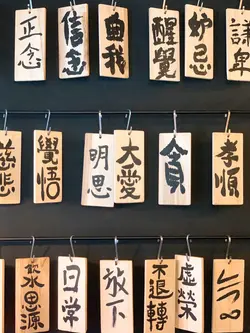 正念
信念
自我
醒覺
妒忌
謙卑
慈悲
覺悟
明思
大愛
貪
孝順
飲水思源
日常
放下
不退轉
虛榮